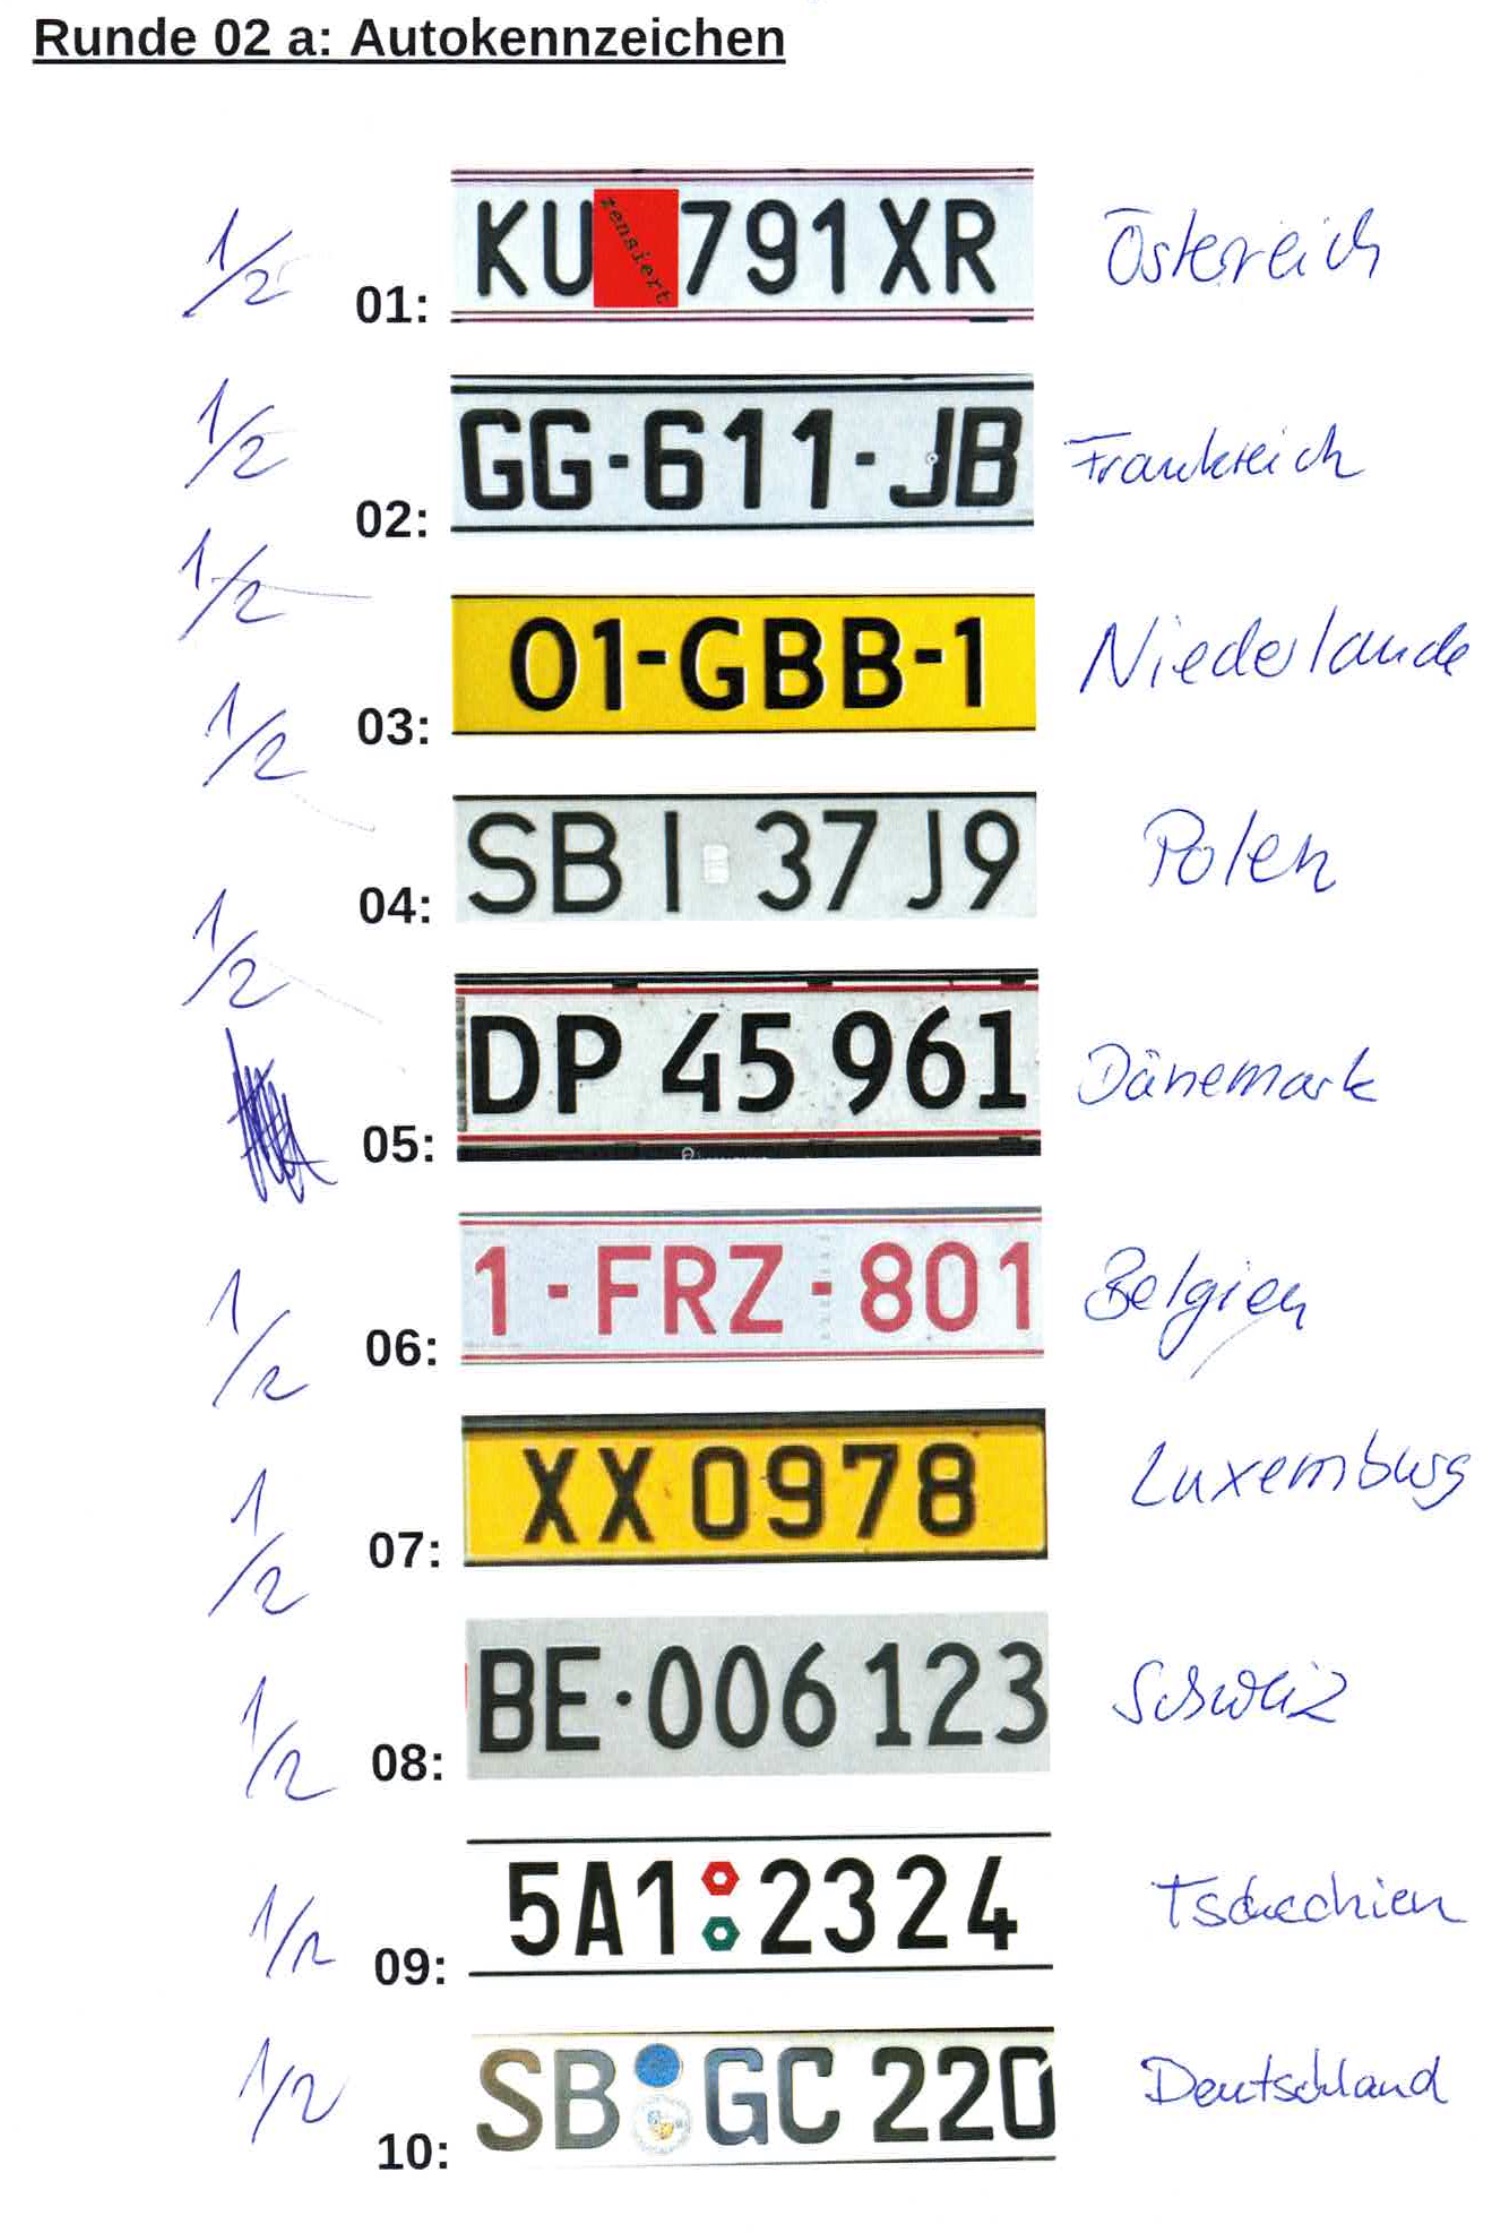 Runde 02 a: Autokennzeichen
1/2 01: KU zensiert 791XR Österreich
1/2 02: GG-611-JB Frankreich
1/2 03: 01-GBB-1 Niederlande
1/2 04: SBI 37J9 Polen
1/2 05: DP 45 961 Dänemark
1/2 06: 1-FRZ-801 Belgien
1/2 07: XX 0978 Luxemburg
1/2 08: BE·006 123 Schweiz
1/2 09: 5A1 2324 Tschechien
1/2 10: SB GC 220 Deutschland